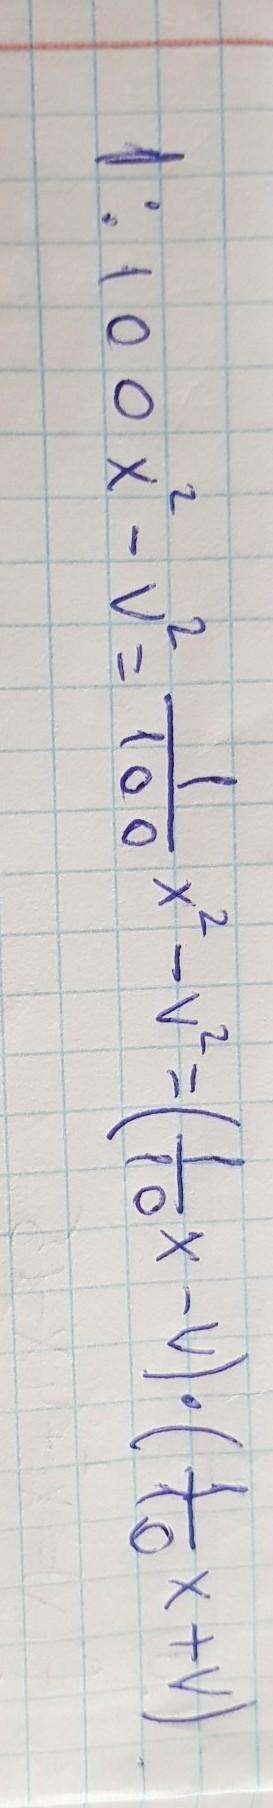 1:100x² - v² = \frac{1}{100}x² - v² = (\frac{1}{10}x - v) · (\frac{1}{10}x + v)